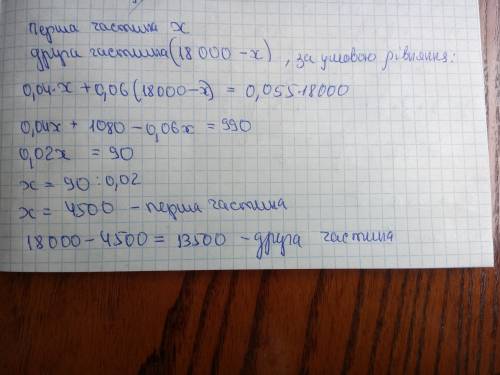 перша частина x
друга частина (18 000 - x) , за умовою рівняння:
0,04·x + 0,06 (18000 - x) = 0,055·18000
0,04x + 1080 - 0,06x = 990
0,02x = 90
x = 90 : 0,02
x = 4500 - перша частина
18000 - 4500 = 13500 - друга частина